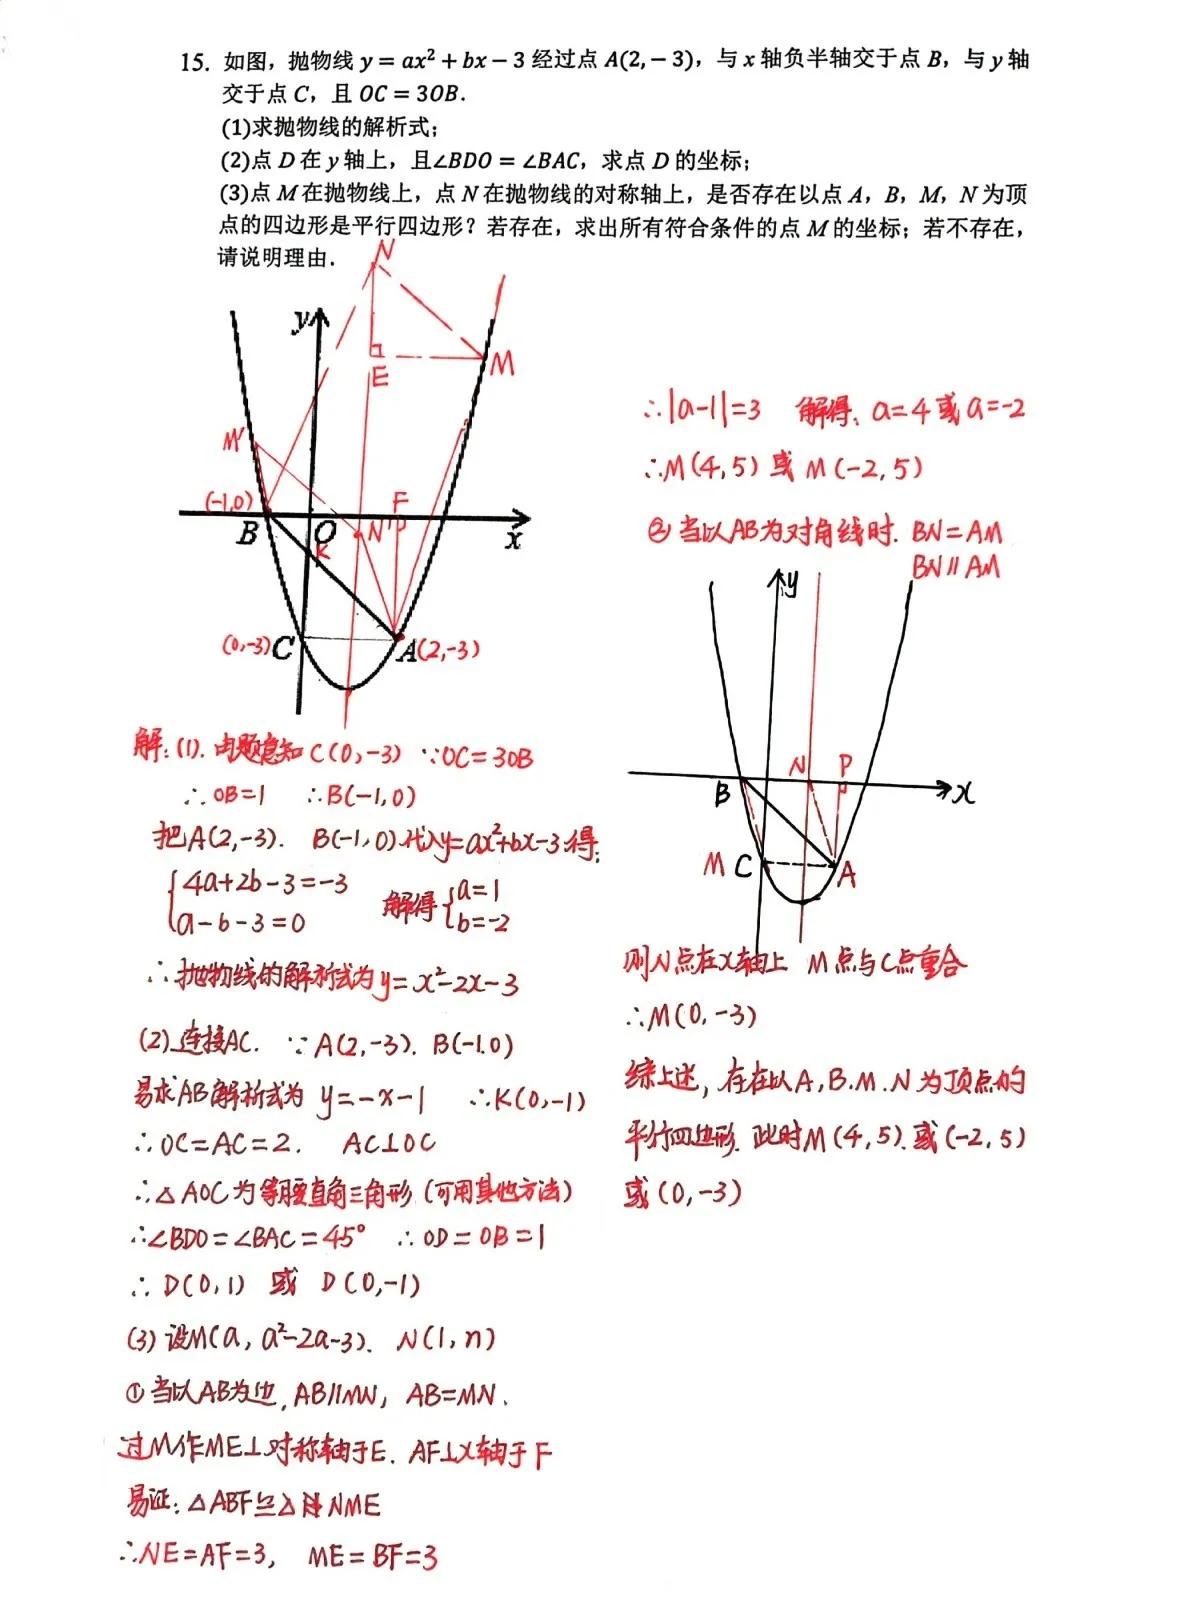 15. 如图，抛物线 y = ax² + bx − 3 经过点 A(2, − 3)，与 x 轴负半轴交于点 B，与 y 轴
交于点 C，且 OC = 3OB.
(1)求抛物线的解析式；
(2)点 D 在 y 轴上，且∠BDO = ∠BAC，求点 D 的坐标；
(3)点 M 在抛物线上，点 N 在抛物线的对称轴上，是否存在以点 A，B，M，N 为顶
点的四边形是平行四边形？若存在，求出所有符合条件的点 M 的坐标；若不存在，
请说明理由.
N
y
E
M
M'
(-1,0)
F
B
O
N'
x
K
(0,-3)
C
A
(2,-3)
解：(1). 由题意知 C(0,-3) ∵OC=3OB
∴OB=1 ∴B(-1,0)
把A(2,-3). B(-1,0)代入y=ax²+bx-3得：
{4a+2b-3=-3
a-b-3=0
解得{a=1
b=-2
∴抛物线的解析式为y=x²-2x-3
(2)连接AC. ∵A(2,-3). B(-1.0)
易求AB解析式为 y=-x-1 ∴K(0,-1)
∴OC=AC=2. AC⊥OC
∴△AOC为等腰直角三角形.(可用其他方法)
∴∠BDO=∠BAC=45° ∴OD=OB=1
∴D(0,1) 或 D(0,-1)
(3) 设M(a, a²-2a-3). N(1,n)
①当以AB为边, AB//MN, AB=MN.
过M作ME⊥对称轴于E. AF⊥X轴于F
易证：△ABF≌△NME
∴NE=AF=3, ME=BF=3
∴|a-1|=3 解得：a=4或a=-2
∴M(4,5) 或 M(-2,5)
②当以AB为对角线时. BN=AM
BN//AM
y
N
P
B
x
M
C
A
则N点在X轴上 M点与C点重合
∴M(0,-3)
综上述, 存在以A,B.M.N为顶点的
平行四边形. 此时M(4,5).或(-2,5)
或(0,-3)